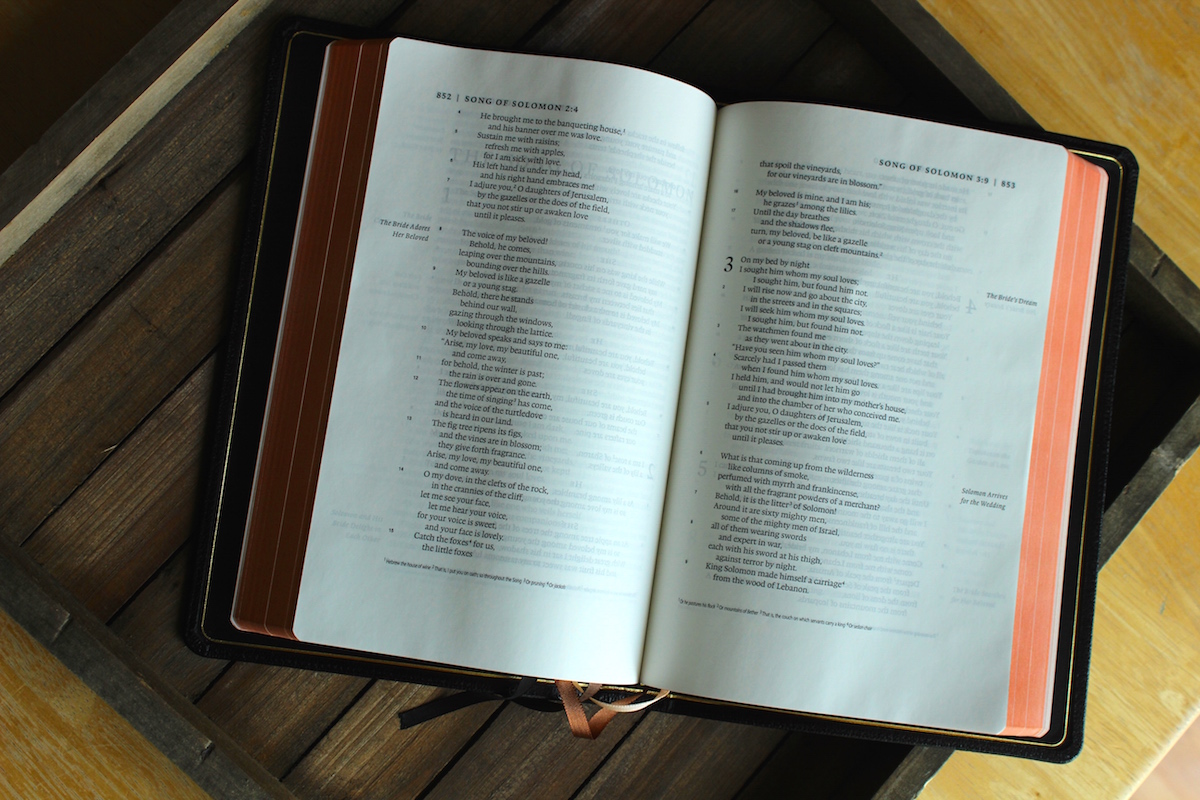 852 | SONG OF SOLOMON 2:4
4 He brought me to the banqueting house,¹
and his banner over me was love.
5 Sustain me with raisins;
refresh me with apples,
for I am sick with love.
6 His left hand is under my head,
and his right hand embraces me!
7 I adjure you,² O daughters of Jerusalem,
by the gazelles or the does of the field,
that you not stir up or awaken love
until it pleases.
The Bride Adores
Her Beloved
8 The voice of my beloved!
Behold, he comes,
leaping over the mountains,
bounding over the hills.
9 My beloved is like a gazelle
or a young stag.
Behold, there he stands
behind our wall,
gazing through the windows,
looking through the lattice.
10 My beloved speaks and says to me:
"Arise, my love, my beautiful one,
and come away,
11 for behold, the winter is past;
the rain is over and gone.
12 The flowers appear on the earth,
the time of singing³ has come,
and the voice of the turtledove
is heard in our land.
13 The fig tree ripens its figs,
and the vines are in blossom;
they give forth fragrance.
Arise, my love, my beautiful one,
and come away.
14 O my dove, in the clefts of the rock,
in the crannies of the cliff,
let me see your face,
let me hear your voice,
for your voice is sweet,
and your face is lovely.
15 Catch the foxes⁴ for us,
the little foxes
¹ Hebrew the house of wine ² That is, I put you on oath; so throughout the Song ³ Or pruning ⁴ Or jackals
SONG OF SOLOMON 3:9 | 853
that spoil the vineyards,
for our vineyards are in blossom."
16 My beloved is mine, and I am his;
he grazes¹ among the lilies.
17 Until the day breathes
and the shadows flee,
turn, my beloved, be like a gazelle
or a young stag on cleft mountains.²
3 On my bed by night
I sought him whom my soul loves;
I sought him, but found him not.
2 I will rise now and go about the city,
in the streets and in the squares;
I will seek him whom my soul loves.
I sought him, but found him not.
3 The watchmen found me
as they went about in the city.
"Have you seen him whom my soul loves?"
4 Scarcely had I passed them
when I found him whom my soul loves.
I held him, and would not let him go
until I had brought him into my mother's house,
and into the chamber of her who conceived me.
5 I adjure you, O daughters of Jerusalem,
by the gazelles or the does of the field,
that you not stir up or awaken love
until it pleases.
The Bride's Dream
6 What is that coming up from the wilderness
like columns of smoke,
perfumed with myrrh and frankincense,
with all the fragrant powders of a merchant?
7 Behold, it is the litter³ of Solomon!
Around it are sixty mighty men,
some of the mighty men of Israel,
8 all of them wearing swords
and expert in war,
each with his sword at his thigh,
against terror by night.
9 King Solomon made himself a carriage⁴
from the wood of Lebanon.
Solomon Arrives
for the Wedding
¹ Or he pastures his flock ² Or mountains of Bether ³ That is, the couch on which servants carry a king ⁴ Or sedan chair